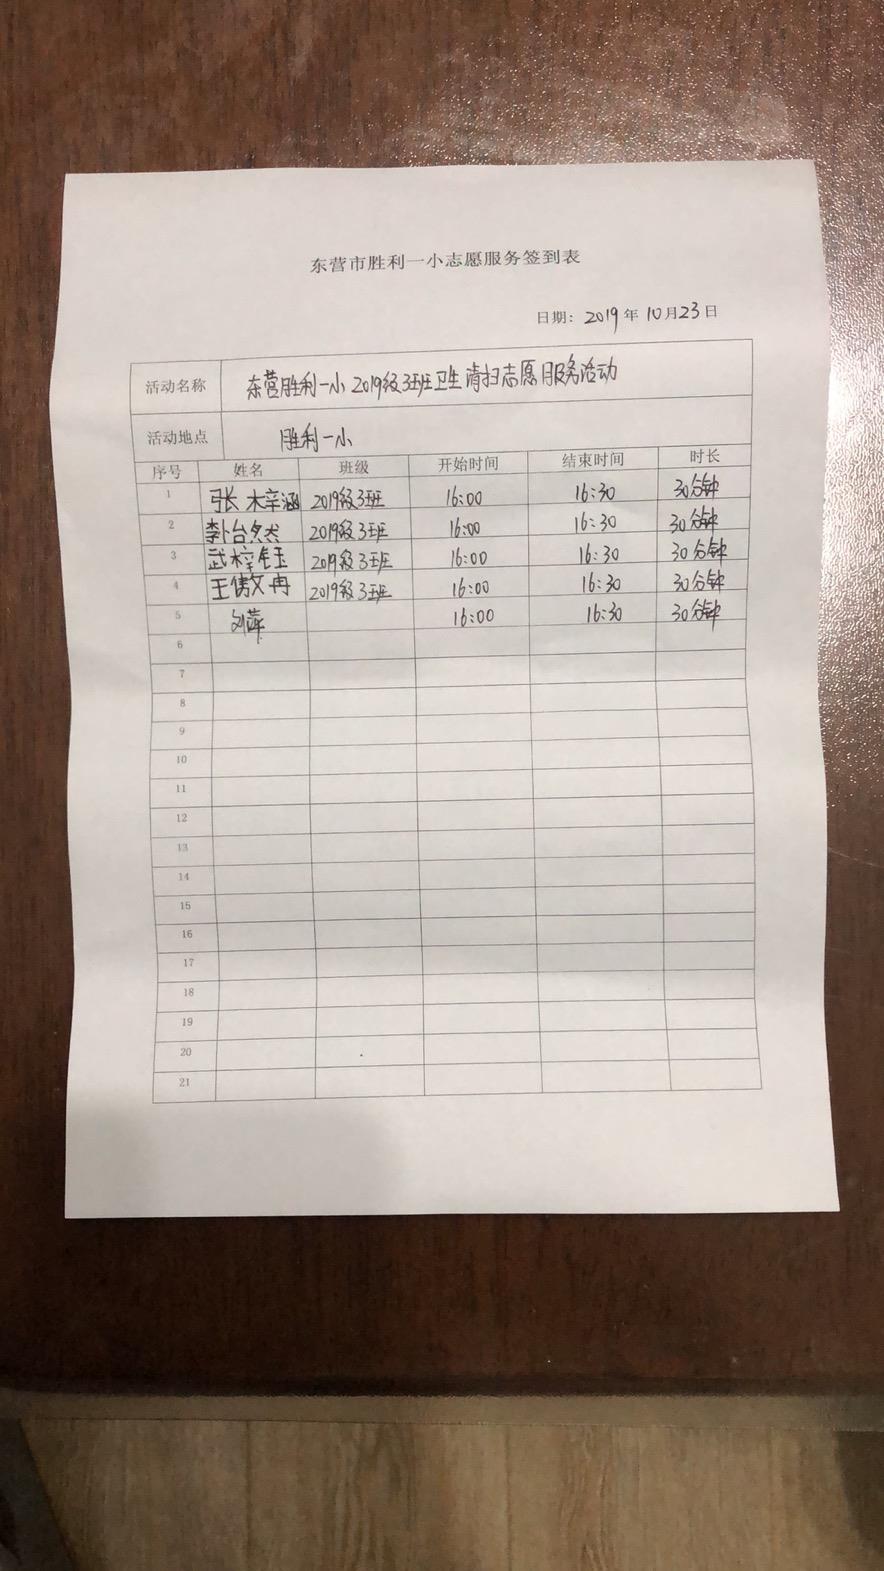 东营市胜利一小志愿服务签到表
日期: 2019年10月23日
活动名称 东营胜利一小2019级3班卫生清扫志愿服务活动
活动地点 胜利一小
序号 姓名 班级 开始时间 结束时间 时长
1 张梓涵 2019级3班 16:00 16:30 30分钟
2 2019级3班 16:00 16:30 30分钟
3 武梓钰 2019级3班 16:00 16:30 30分钟
4 王傲冉 2019级3班 16:00 16:30 30分钟
5 刘萍 16:00 16:30 30分钟
6
7
8
9
10
11
12
13
14
15
16
17
18
19
20
21